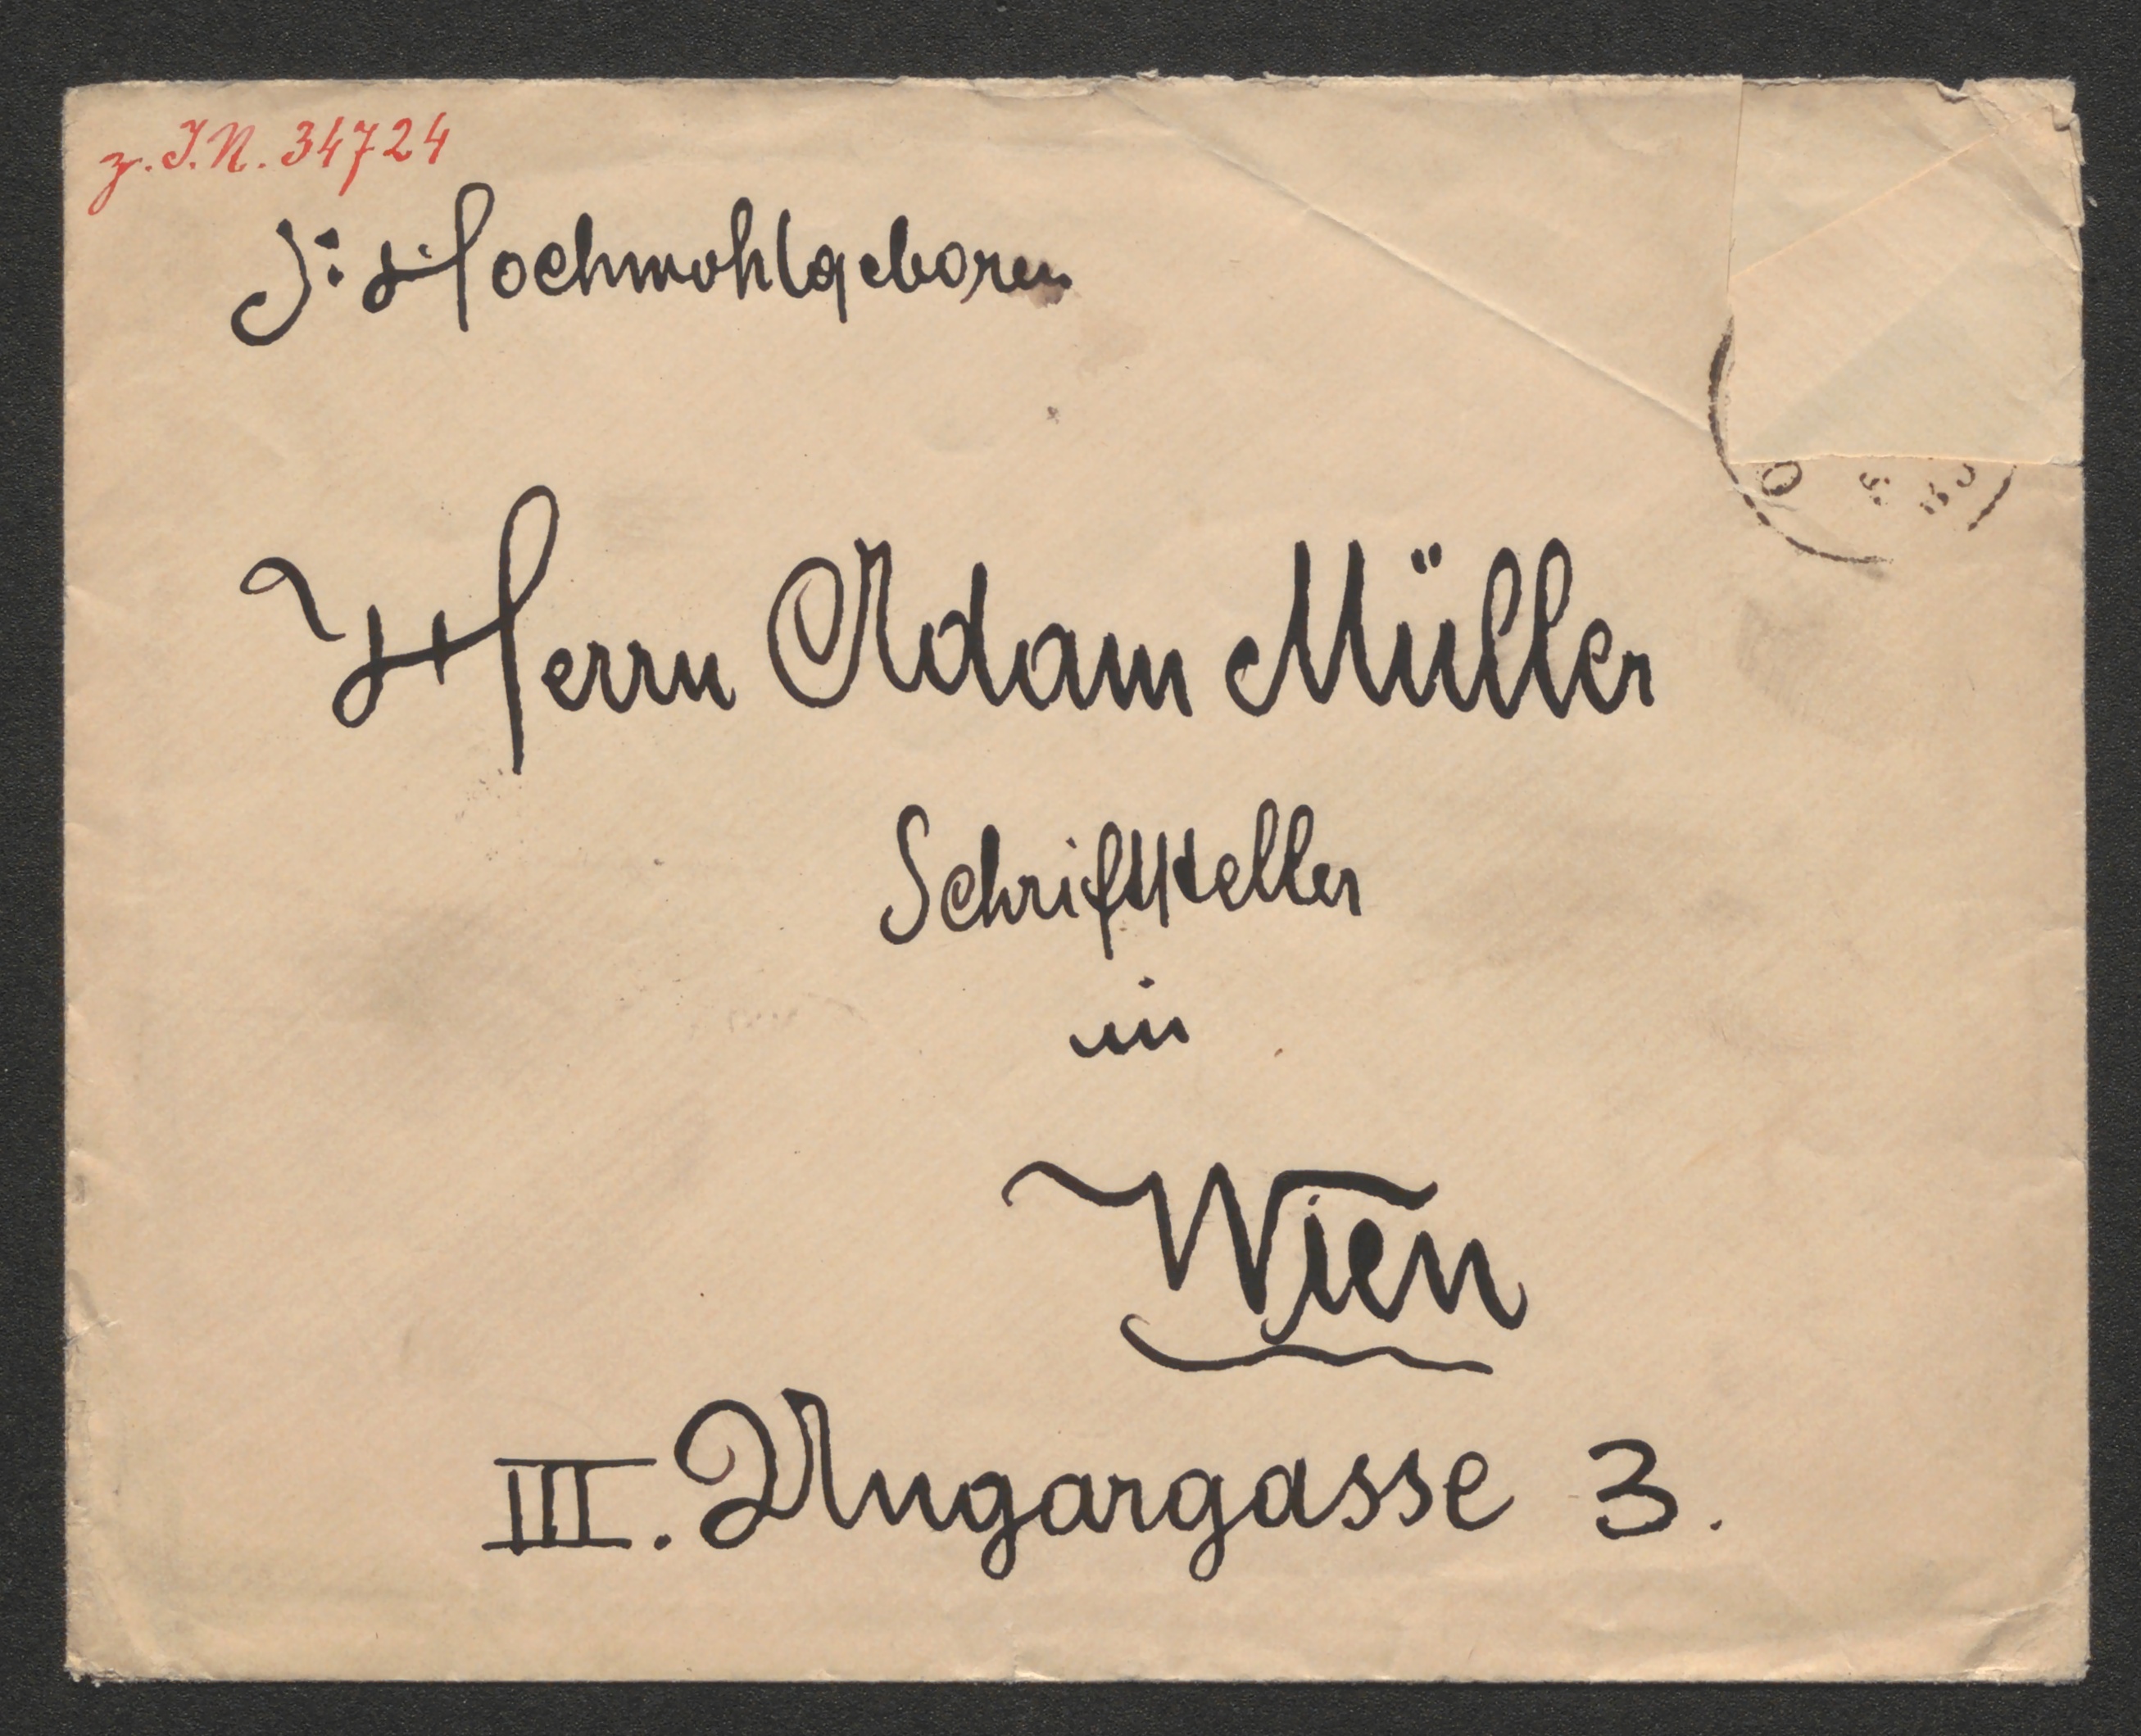 z. I.N. 34724
S: Hochwohlgeboren
Herrn Adam Müller
Schriftsteller
in
Wien
III. Ungargasse 3.